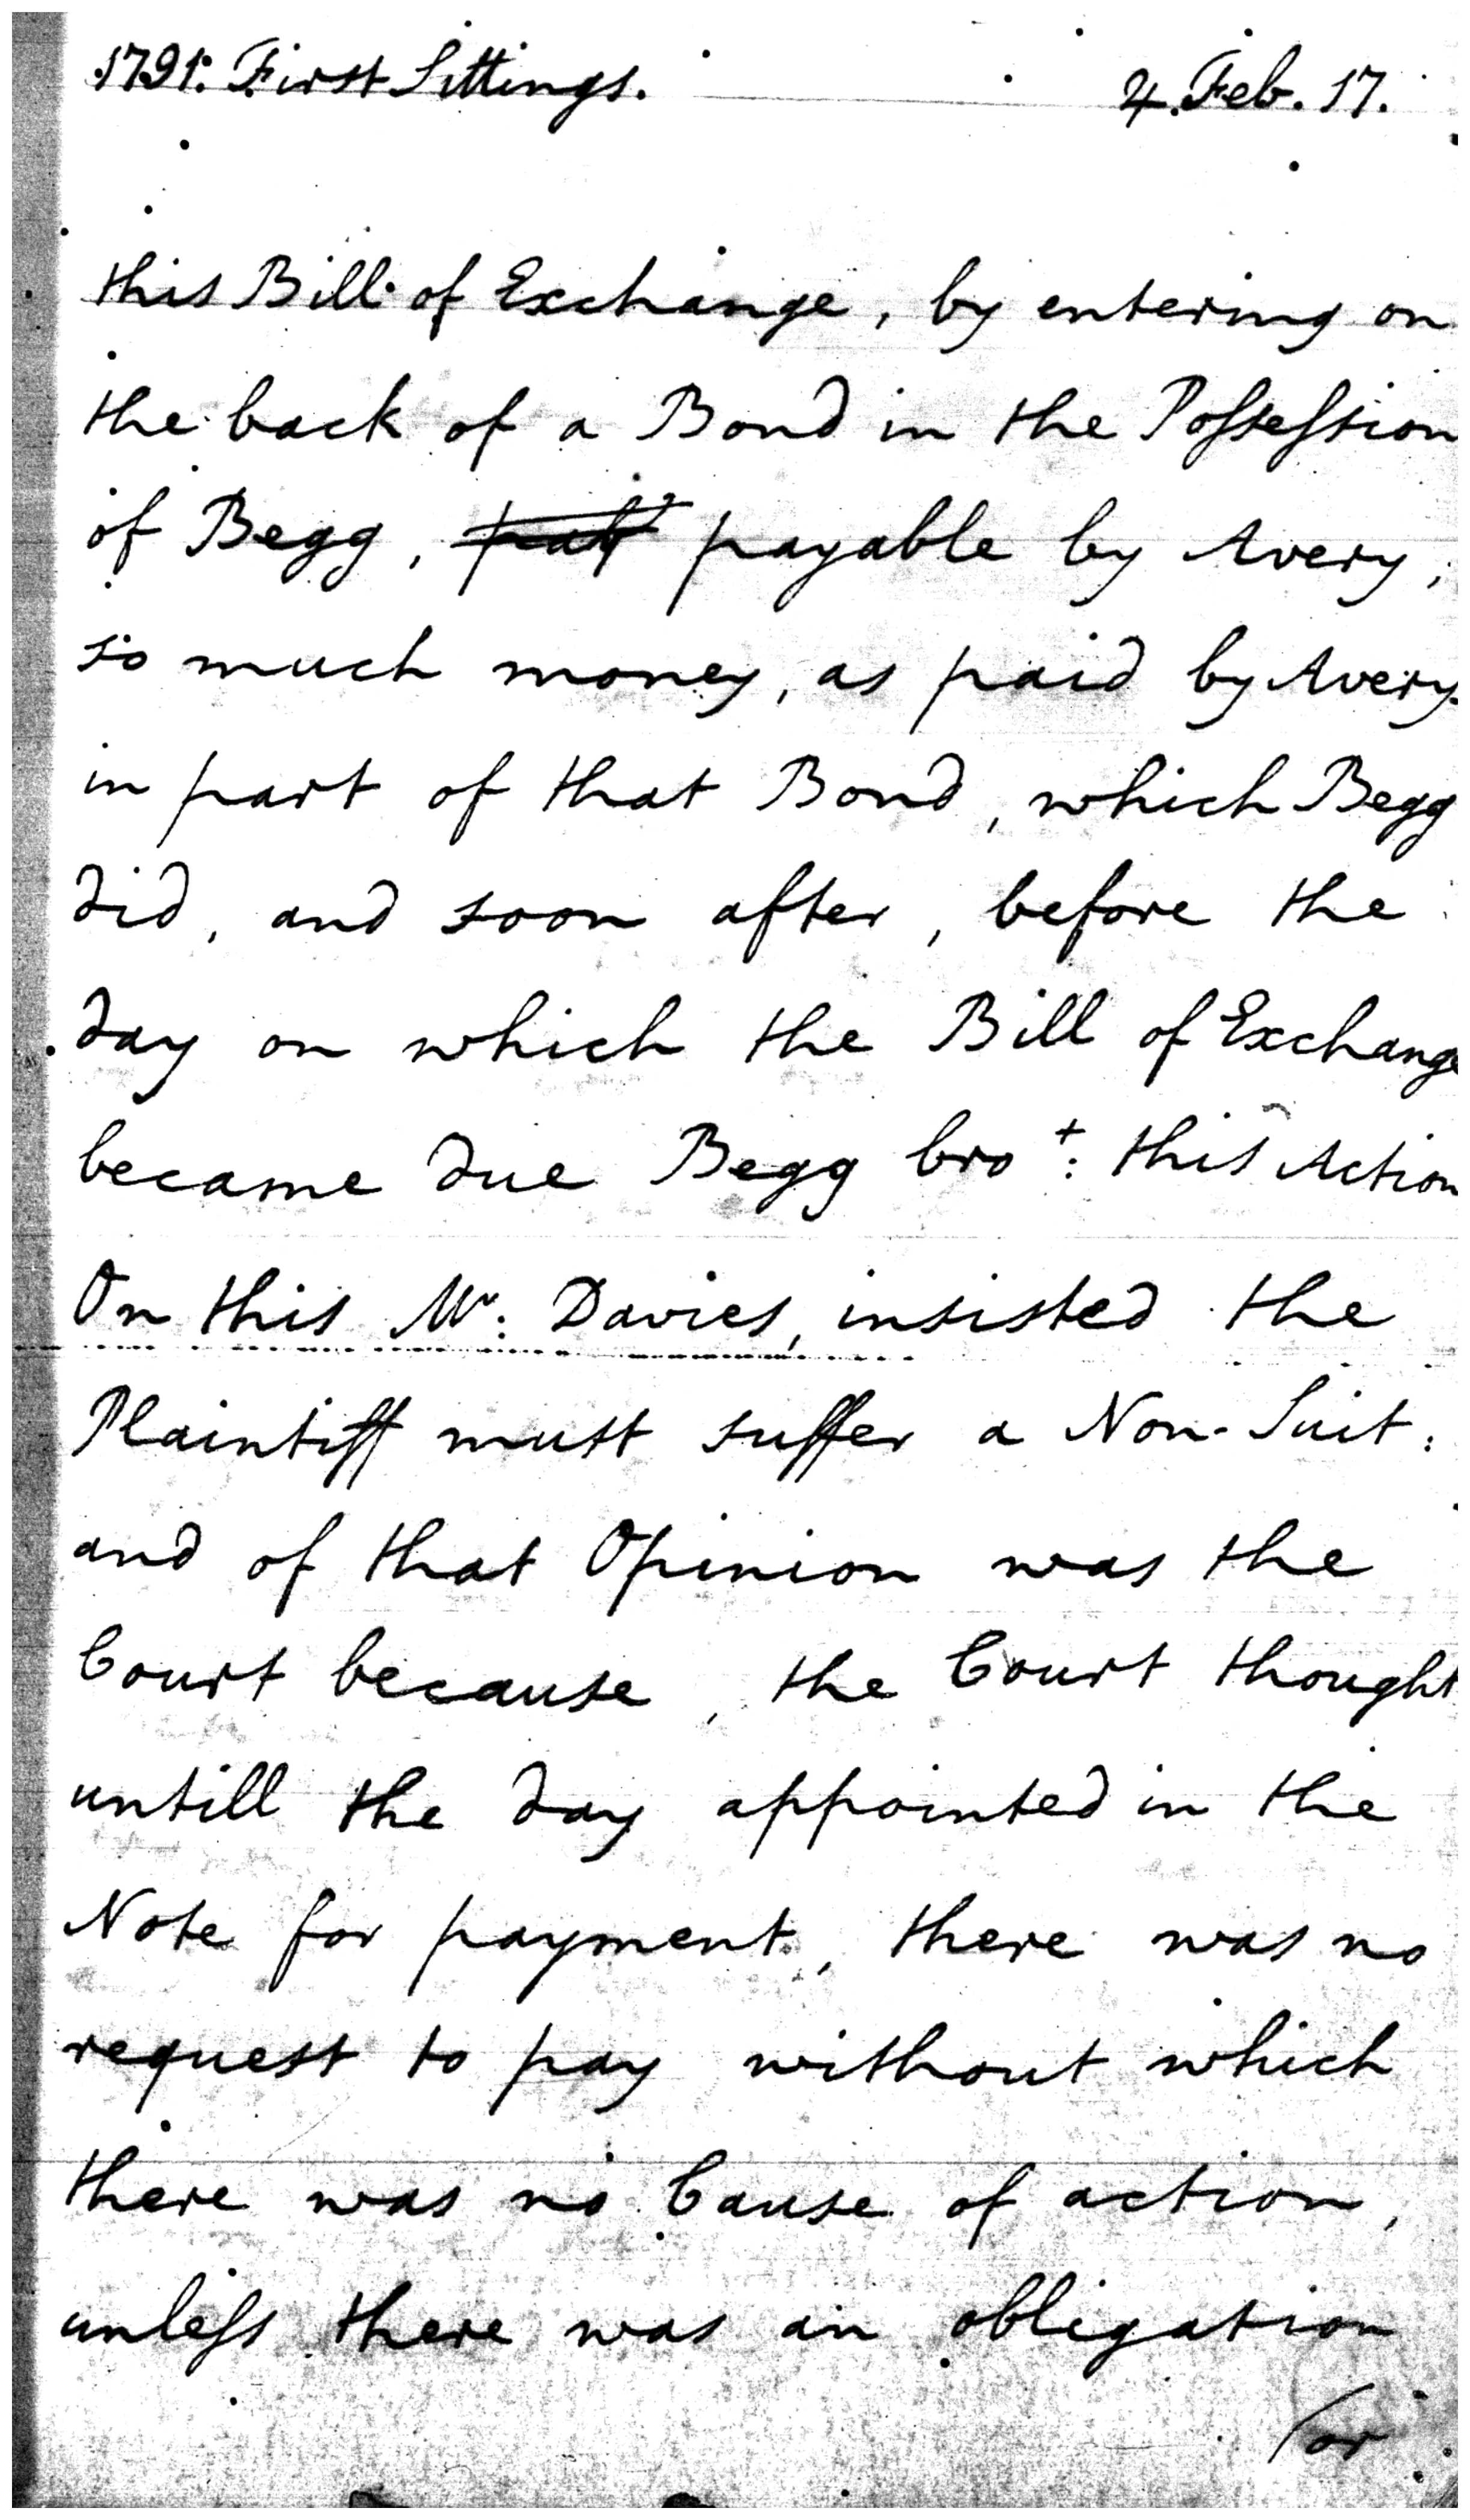 1791. First Sittings. 4. Feb. 17.
this Bill of Exchange, by entering on
the back of a Bond in the Poſseſsion
of Begg, payable by Avery,
so much money, as paid by Avery
in part of that Bond, which Begg
did, and soon after, before the
day on which the Bill of Exchange
became due Begg bro^t: this Action
On this M^r: Davies, insisted the
Plaintiff must suffer a Non-Suit:
and of that Opinion was the
Court because, the Court thought
untill the day appointed in the
Note for payment, there was no
request to pay without which
there was no Cause of action,
unleſs there was an obligation
or